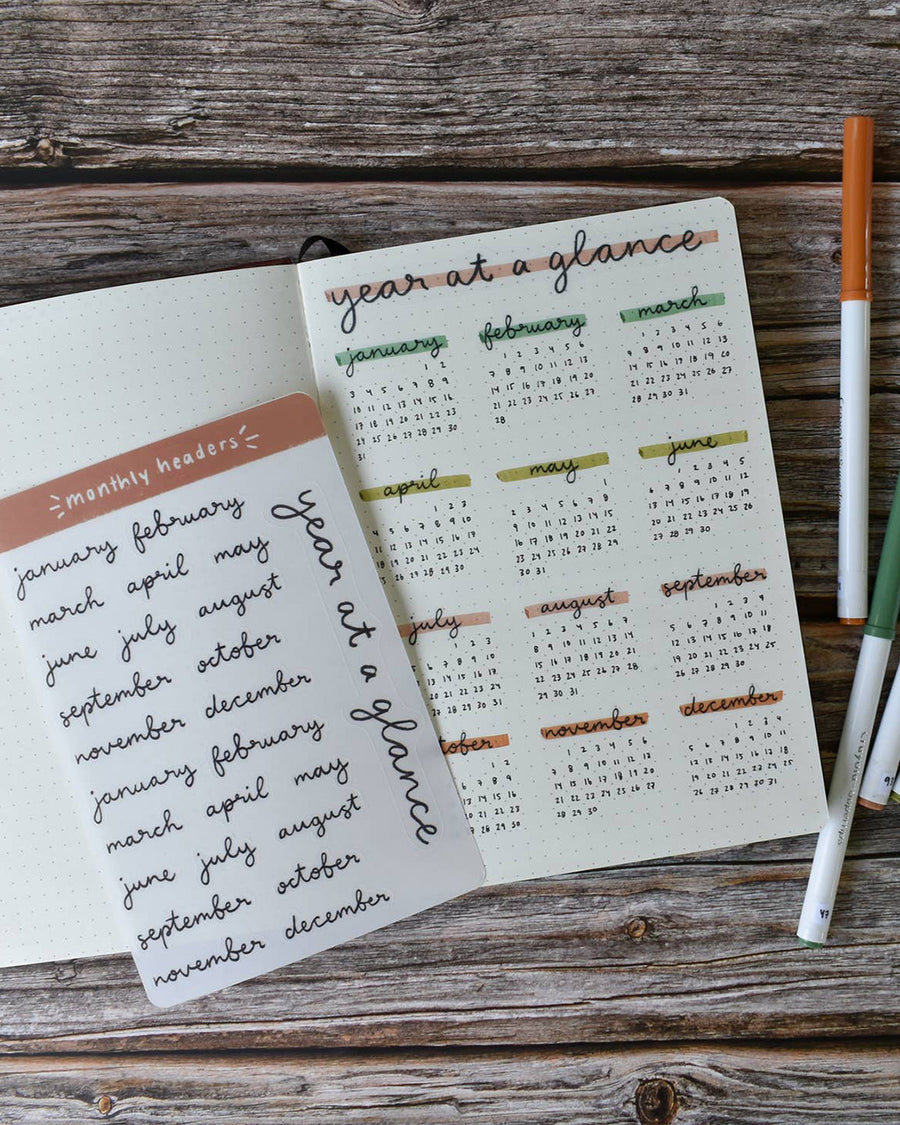 year at a glance
january
1 2
3 4 5 6 7 8 9
10 11 12 13 14 15 16
17 18 19 20 21 22 23
24 25 26 27 28 29 30
31
february
1 2 3 4 5 6
7 8 9 10 11 12 13
14 15 16 17 18 19 20
21 22 23 24 25 26 27
28
march
1 2 3 4 5 6
7 8 9 10 11 12 13
14 15 16 17 18 19 20
21 22 23 24 25 26 27
28 29 30 31
april
1 2 3
4 5 6 7 8 9 10
12 13 14 15 16 17
19 20 21 22 23 24
26 27 28 29 30
may
1
2 3 4 5 6 7 8
9 10 11 12 13 14 15
16 17 18 19 20 21 22
23 24 25 26 27 28 29
30 31
june
1 2 3 4 5
6 7 8 9 10 11 12
13 14 15 16 17 18 19
20 21 22 23 24 25 26
27 28 29 30
july
1 2 3
5 6 7 8 9 10
13 14 15 16 17
20 21 22 23 24
27 28 29 30 31
august
1 2 3 4 5 6 7
8 9 10 11 12 13 14
15 16 17 18 19 20 21
22 23 24 25 26 27 28
29 30 31
september
1 2 3 4
5 6 7 8 9 10 11
12 13 14 15 16 17 18
19 20 21 22 23 24 25
26 27 28 29 30
tober
1 2
6 7 8 9
13 14 15 16
20 21 22 23
28 29 30
november
1 2 3 4 5 6
7 8 9 10 11 12 13
14 15 16 17 18 19 20
21 22 23 24 25 26 27
28 29 30
december
1 2 3 4
5 6 7 8 9 10 11
12 13 14 15 16 17 18
19 20 21 22 23 24 25
26 27 28 29 30 31
monthly headers
january february
march april may
june july august
september october
november december
january february
march april may
june july august
september october
november december
year at a glance
crayola supertips
47